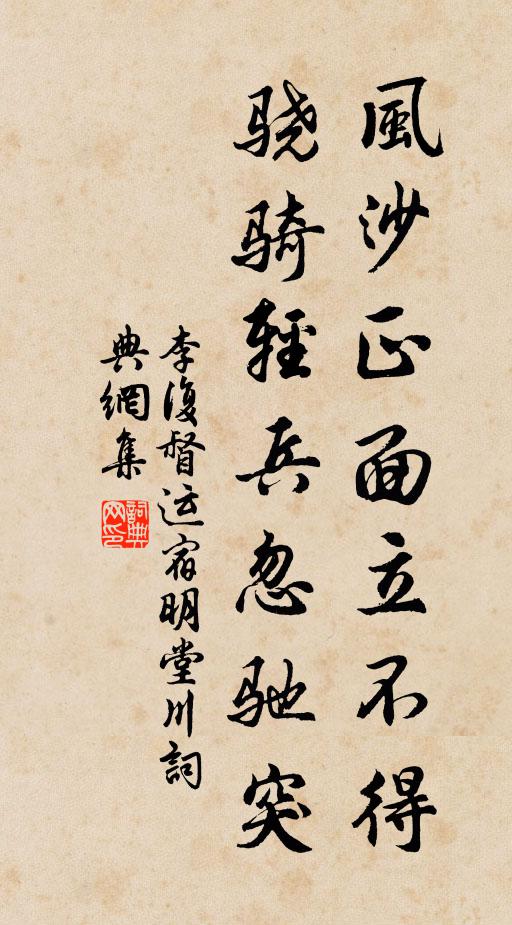 風沙正面立不得
骁骑輕兵忽驰突
李復督运宿明堂川詞
典網集
詞典网印